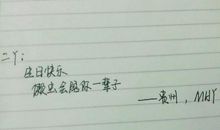 二丫：
生日快乐
微虫会陪你一辈子
——贵州，MHY